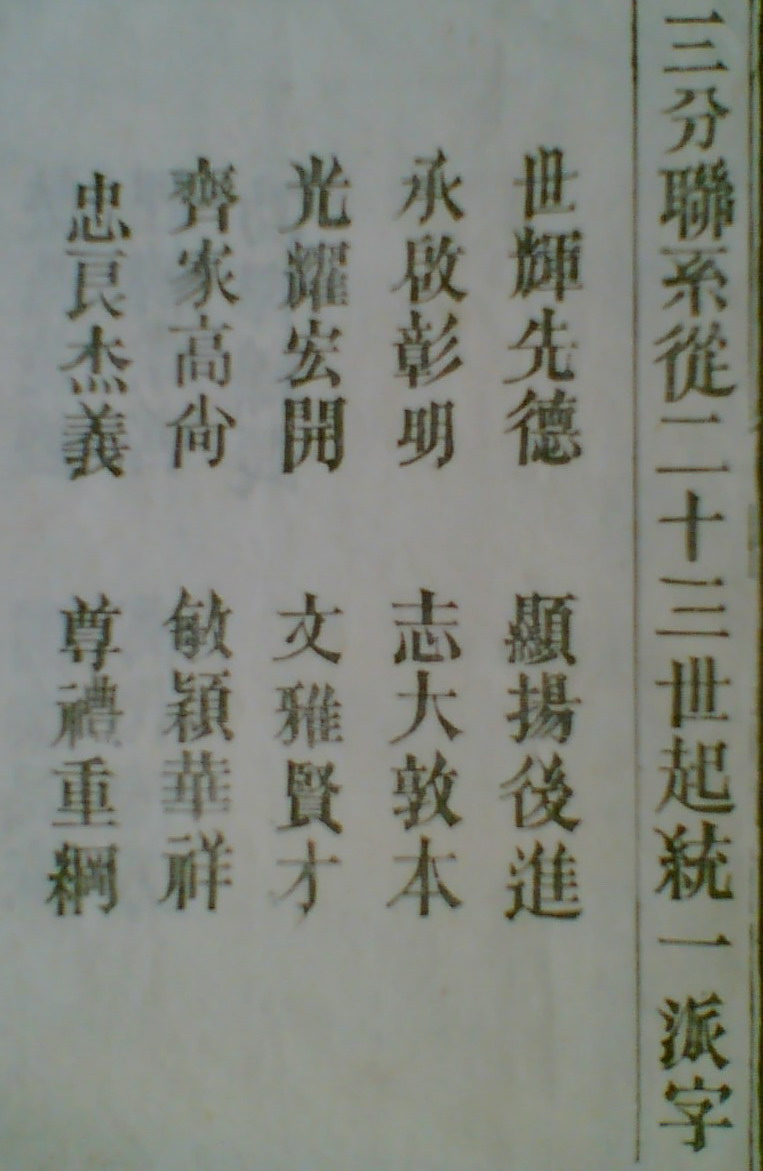 三分聯系從二十三世起統一派字
世輝先德 顯揚後進
承啟彰明 志大敦本
光耀宏開 文雅賢才
齊家高尙 敏穎華祥
忠良杰義 尊禮重綱